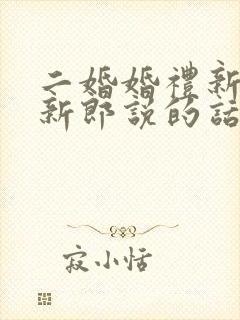 二婚婚禮新
新郎説的話
寂小恬